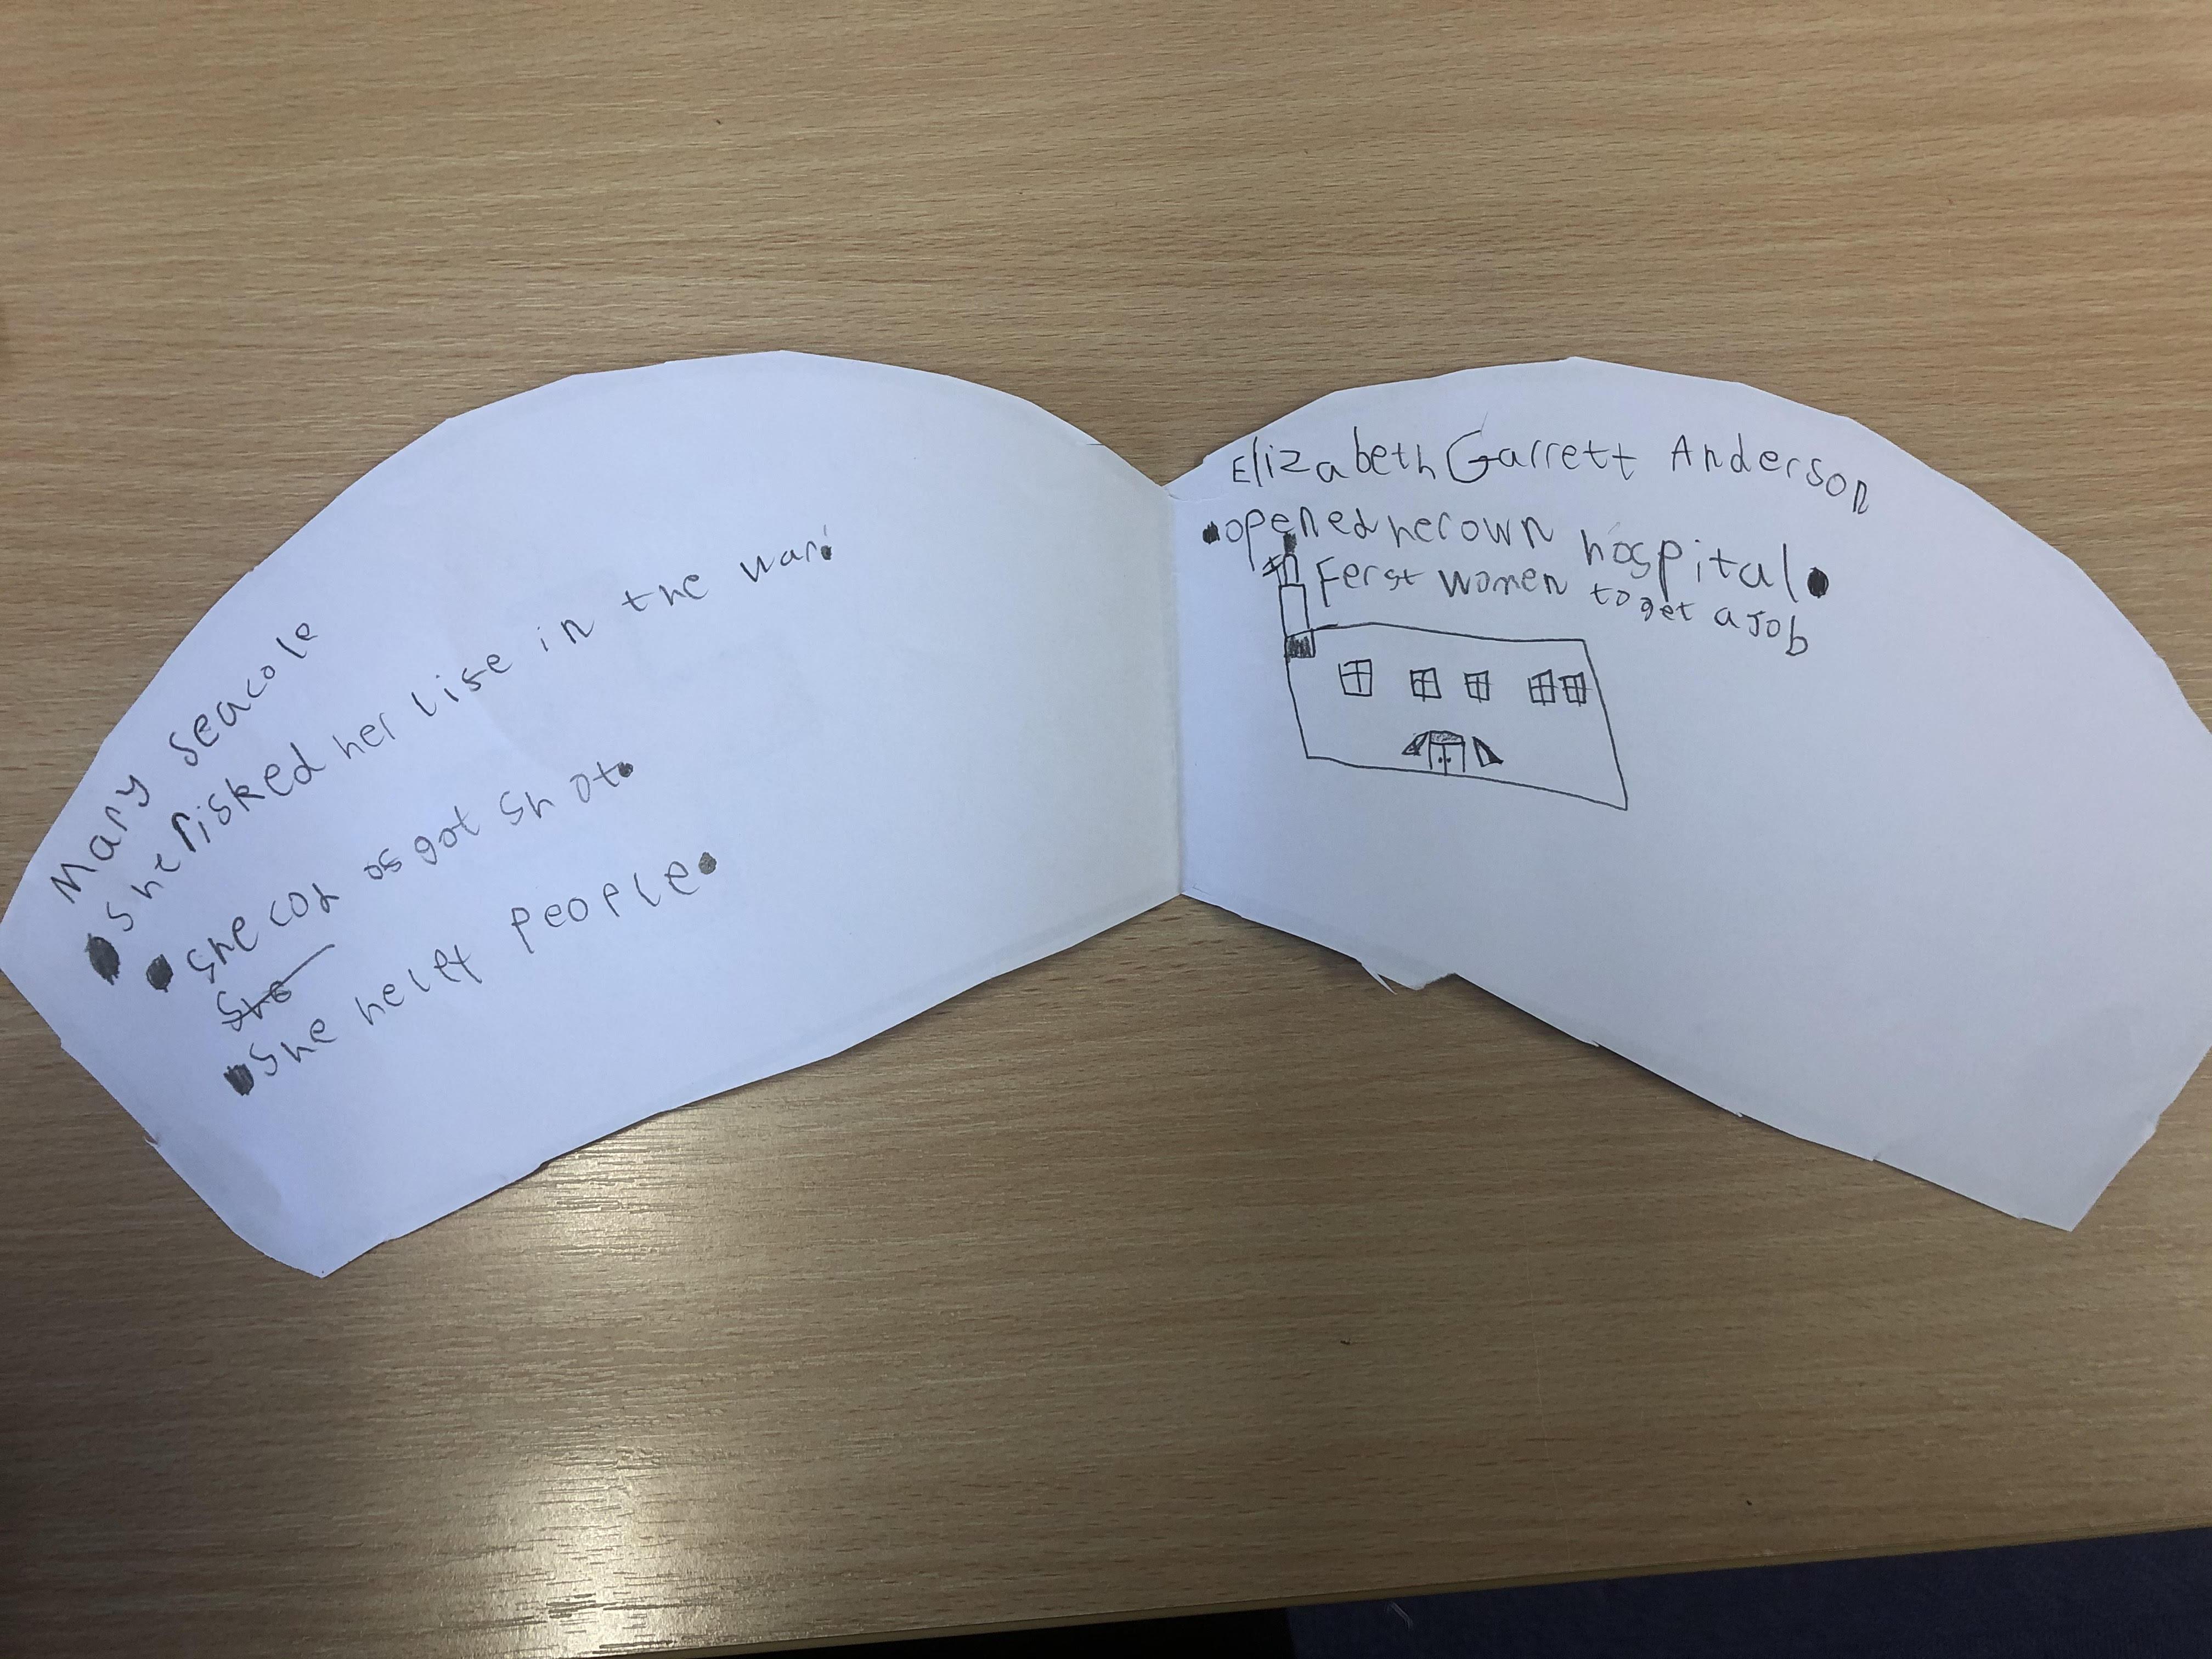 Mary Seacole
• She risked her life in the war.
• She cod os got shot.
She
• She helpt people.
Elizabeth Garrett Anderson
• opened her own hospital.
Ferst women to get a Job